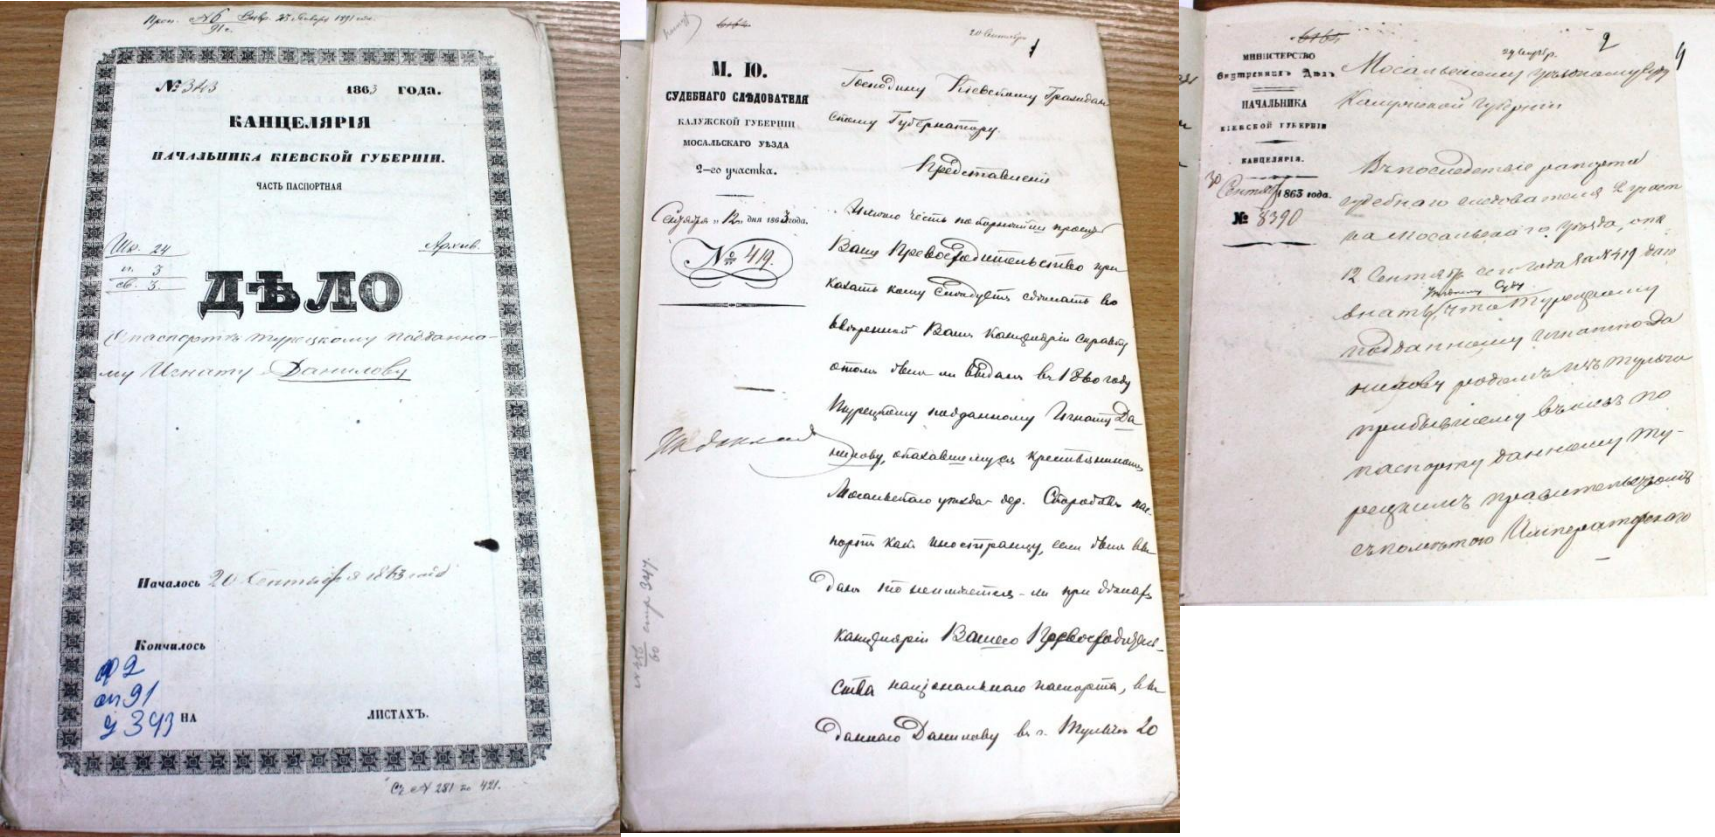 № 343 1863 года.
КАНЦЕЛЯРІЯ
НАЧАЛЬНИКА КІЕВСКОЙ ГУБЕРНІИ.
ЧАСТЬ ПАСПОРТНАЯ
Шк. 24
п. 3
св. 3
Архив.
ДѢЛО
О паспортѣ турецкому подданно-
му Игнату Данилову
Началось 20 Сентября 1863 года
Кончилось
оп 91
НА ЛИСТАХЪ.
Съ № 281 по 421.
20 Сентября
1
М. Ю.
СУДЕБНАГО СЛѢДОВАТЕЛЯ
КАЛУЖСКОЙ ГУБЕРНІИ
МОСАЛЬСКАГО УѢЗДА
2-го участка.
Сентября „12" дня 1863 года.
№ 419.
Господину Кіевскому Граждан
скому Губернатору.
Представленіе
Имѣю честь покорнѣйше просить
Ваше Превосходительство при
казать кому слѣдуетъ сдѣлать во
ввѣренной Вамъ Канцеляріи справку
о томъ былъ ли выданъ въ 1860 году
Турецкому подданному Игнату Да
нилову, оказавшемуся крестьяниномъ
Мосальскаго уѣзда дер. пас-
портъ какъ иностранцу, если былъ вы-
данъ то неимѣется-ли при дѣлахъ
канцеляріи Вашего Превосходитель-
ства національнаго паспорта, вы
даннаго Данилову въ г. Тульчѣ 20
МИНИСТЕРСТВО
Внутреннихъ Дѣлъ
НАЧАЛЬНИКА
КІЕВСКОЙ ГУБЕРНІИ
КАНЦЕЛЯРІЯ.
30 Сентября 1863 года.
№ 8390
2
Мосальскому уѣздному суду
Калужской Губерніи
Въ послѣдствіе рапорта
судебнаго слѣдователя 2 участ
ка Мосальскаго уѣзда, отъ
12 Сентября сего года за № 419 даю
знать Уѣздному Суду, что Турецкому
подданному Игнату Да
нилову родомъ изъ Тульчи
прибывшему въ Кіевъ по
паспорту данному Ту-
рецкимъ правительствомъ
съ помѣтою Императорскаго